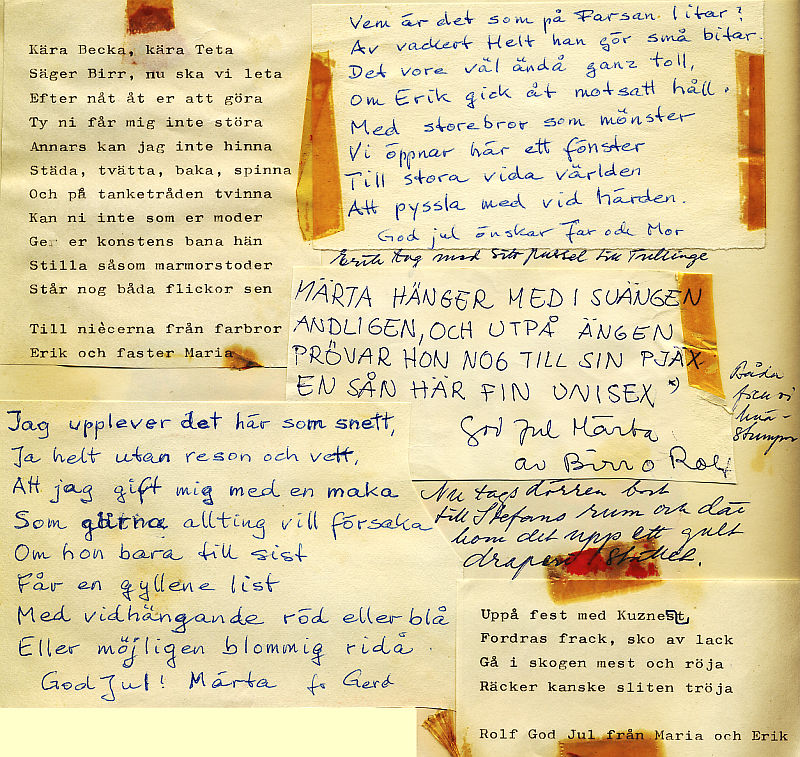 Kära Becka, kära Teta
Säger Birr, nu ska vi leta
Efter nåt åt er att göra
Ty ni får mig inte störa
Annars kan jag inte hinna
Städa, tvätta, baka, spinna
Och på tanketråden tvinna
Kan ni inte som er moder
Ger er konstens bana hän
Stilla såsom marmorstoder
Står nog båda flickor sen
Till niècerna från farbror
Erik och faster Maria
Vem är det som på Farsan litar?
Av vackert Helt han gör små bitar.
Det vore väl ändå ganz toll,
Om Erik gick åt motsatt håll.
Med storebror som mönster
Vi öppnar här ett fönster
Till stora vida världen
Att pyssla med vid härden.
God jul önskar Far och Mor
Erik tog med sitt pussel till Tullinge
MÄRTA HÄNGER MED I SVÄNGEN
ANDLIGEN, OCH UTPÅ ÄNGEN
PRÖVAR HON NOG TILL SIN PJÄX
EN SÅN HÄR FIN UNISEX *)
God Jul Märta
av Birr o Rolf
Båda
fick vi
knä-
strumpor
Jag upplever det här som snett,
Ja helt utan reson och vett,
Att jag gift mig med en maka
Som gärna allting vill försaka
Om hon bara till sist
Får en gyllene list
Med vidhängande röd eller blå
Eller möjligen blommig ridå.
God Jul! Märta fr Gerd
Nu togs dörren bort
till Stefans rum och där
kom det upp ett gult
draperi i stället.
Uppå fest med Kuznest,
Fordras frack, sko av lack
Gå i skogen mest och röja
Räcker kanske sliten tröja
Rolf God Jul från Maria och Erik